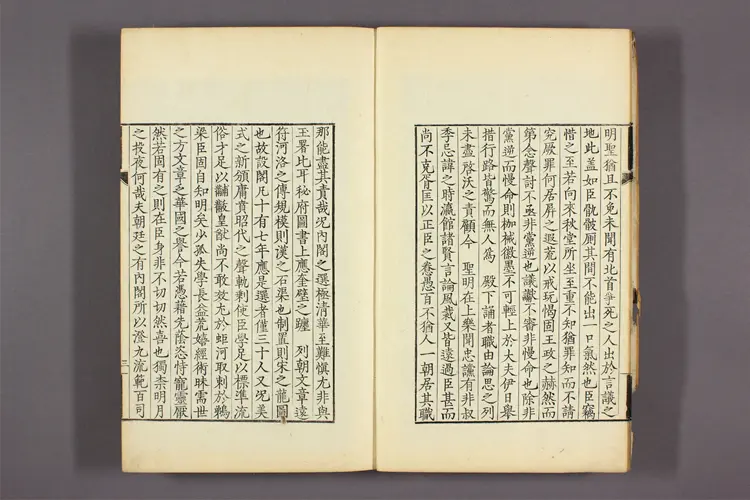 明聖猶且不免未聞有北首爭死之人出於言議之
地此盖如臣骯髒厠其間不能出一口氣然也臣竊
惜之至若向來秋堂所坐至重不知猶罪知而不請
究厥罪何居屛之遐荒以戒玩愒固王政之赫然而
第念聲討不亟非黨逆也議讞不審非慢命也除非
黨逆而慢命則枷械徽墨不可輕上於大夫伊日舉
措行路皆驚而無人爲 殿下誦者職由論思之列
未盡啓沃之責顧今 聖明在上樂聞忠讜有非叔
季忌諱之時瀛館諸賢言論風裁又皆遠過臣甚而
尚不克胥匡以正臣之惷愚百不猶人一朝居其職
那能盡其責哉况內閣之選極淸華至難愼尤非與
玉署比耳秘府圖書上應奎壁之躔 列朝文章遠
符河洛之傳規模則漢之石渠也制置則宋之龍圖
也故設閣凡十有七年應是選者僅三十人又况美
式之新頒庸賁昭代之聲軌剌使臣學足以標準流
俗才足以黼黻皇猷尚不敢效尤於蚷河取刺於鵜
梁臣固自知明矣少孤失學長益荒嬉經術昧需世
之方文章乏華國之譽今若憑藉先蔭恣恃寵靈厭
然若固有之則在臣身非不切切然喜也獨柰明月
之投夜何哉夫朝廷之有內閣所以澄九流範百司
三